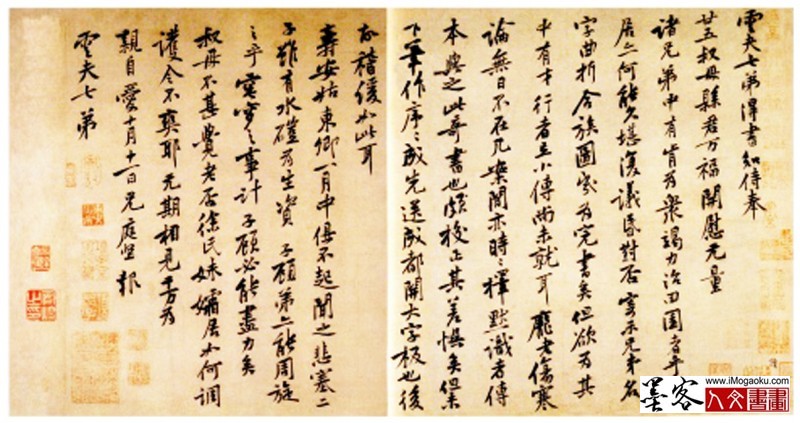 雲夫七弟得書知侍奉
廿五叔母縣君万福開慰无量
諸兄弟中有肯为衆竭力治田園者乎
居亦何能久堪復議昏對否寄示兄弟名
字曲折合族圖幾为完書矣但欲为其
中有才行者立小傳尚未就耳龐老傷寒
論無日不在几案間亦時〻擇默識者傳
本與之此奇書也頗校正其差誤矣但未
下筆作序〻成先送成都開大字板也後
故稽緩如此耳
壽安姑東卿一月中俱不起聞之悲塞二
子雖有水磑为生資子顧弟亦能周旋
之乎窀穸之事計子顧必能盡力矣
叔母不甚覺老否徐氏妹孀居如何調
護令不爽耶无期相見千万为
親自愛十月十一日兄庭堅報
雲夫七弟
墨客
www.iMogaoku.com
人文書畫